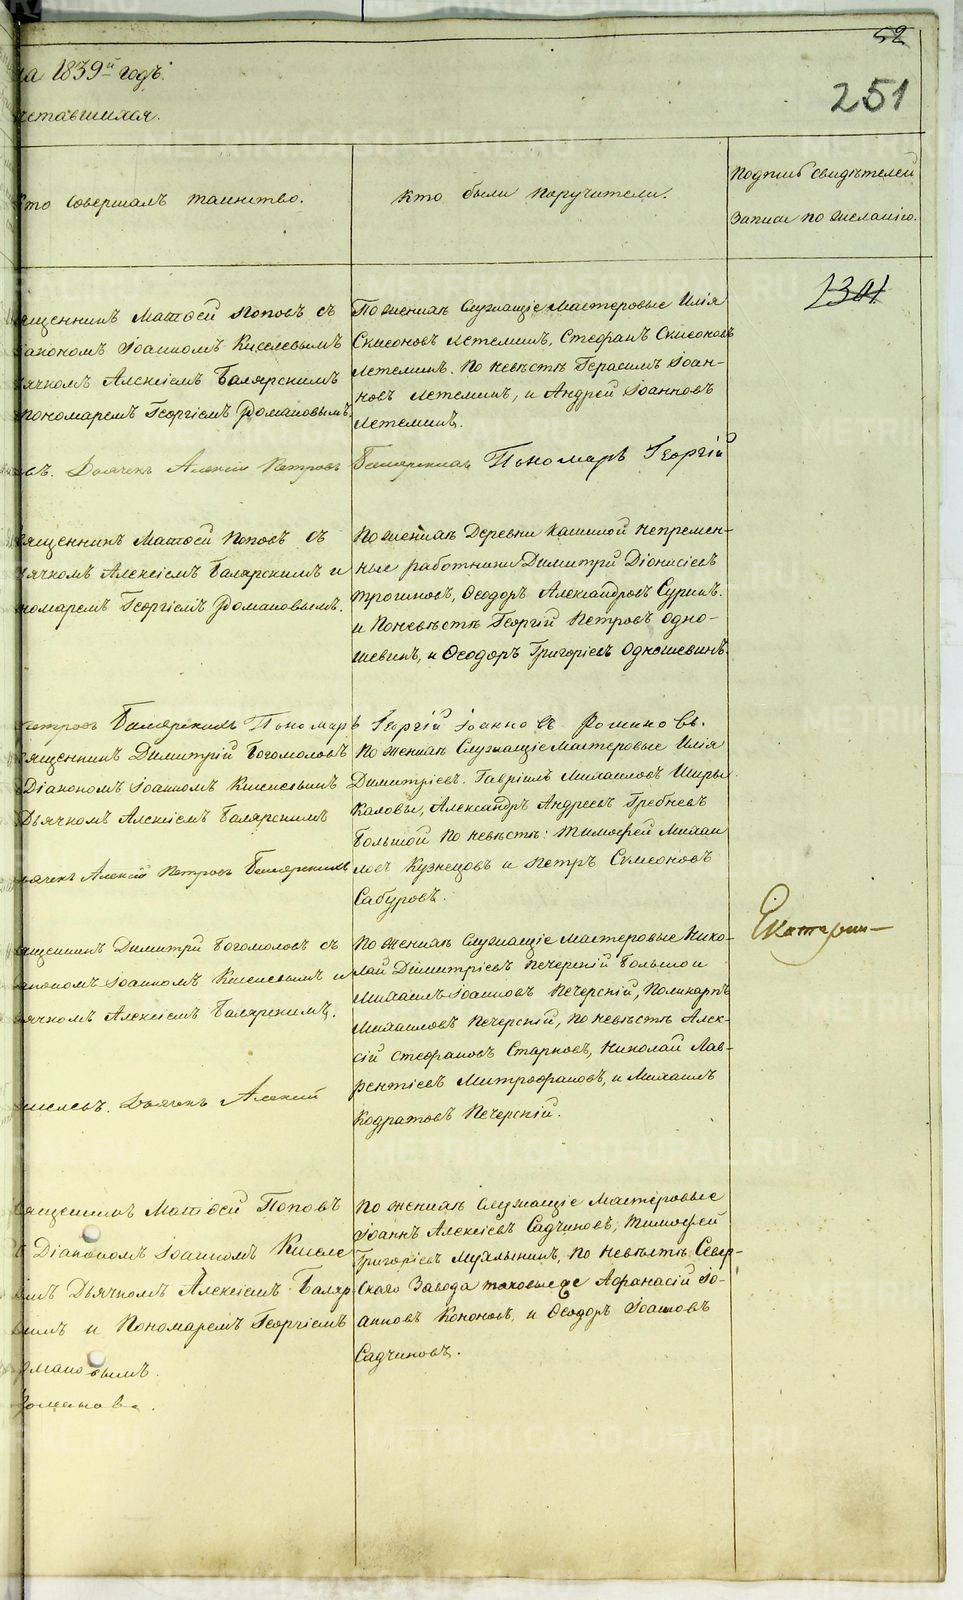 52
на 1839й годъ.
четавшихся.
251
Кто совершалъ таинство.
Кто были поручители.
Подпись свидѣтелей
записи по желанію.
1301
ященникъ Матѳей Поповъ съ
іакономъ Іоанномъ Киселевымъ
ячкомъ Алексіемъ Балярскимъ
пономаремъ Георгіемъ Романовымъ.
По женихѣ Служащіе Мастеровые Илія
Симеоновъ Летеминъ, Стефанъ Симеоновъ
Летеминъ. По невѣстѣ Герасимъ Іоан-
новъ Летеминъ, и Андрей Іоанновъ
Летеминъ.
въ. Дьячекъ Алексій Петровъ Балярскій Пономарь Георгій
ященникъ Матѳей Поповъ съ
ячкомъ Алексіемъ Балярскимъ и
номаремъ Георгіемъ Романовымъ.
По женихѣ Деревни Кашиной непремен-
ные работники Димитрій Діонисіевъ
Трошновъ, Ѳеодоръ Александровъ Суринъ.
и По невѣстѣ Георгій Петровъ Одно-
шевинъ, и Ѳеодоръ Григоріевъ Одношевинъ.
Петровъ Балярскій Пономарь Георгій Іоанновъ Романовъ.
ященникъ Димитрій Богомоловъ
Діакономъ Іоанномъ Киселевымъ
Дьячкомъ Алексіемъ Балярскимъ
ьячекъ Алексій Петровъ Балярскій
По женихѣ Служащіе Мастеровые Илія
Димитріевъ. Гавріилъ Михаиловъ Ширы-
каловы, Александръ Андреевъ Гребневъ
Большой По невѣстѣ: Тимоѳей Михаи
ловъ Кузнецовъ и Петръ Симеоновъ
Сабуровъ.
Екатерин—
ященникъ Димитрій Богомоловъ съ
акономъ Іоанномъ Киселевымъ и
ячкомъ Алексіемъ Балярскимъ.
иселевъ. Дьячекъ Алексій
По женихѣ Служащіе Мастеровые Нико-
лай Димитріевъ Печерскій Большой
Михаилъ Іоанновъ Печерскій, Поликарпъ
Михаиловъ Печерскій, по невѣстѣ Алек-
сій Стефановъ Старковъ, Николай Лав-
рентіевъ Митрофановъ, и Михаилъ
Кодратовъ Печерскій.
ященникъ Матѳей Поповъ
съ Діакономъ Іоанномъ Киселе
ымъ Дьячкомъ Алексіемъ Баляр
кимъ и Пономаремъ Георгіемъ
омановымъ.
Романовъ.
По женихѣ Служащіе Мастеровые
Іоаннъ Алексіевъ Садчиковъ, Тимоѳей
Григоріевъ Мухлынинъ, по невѣстѣ Север-
скаго Завода таковые же Афанасій Іо-
анновъ Кононовъ, и Ѳеодоръ Іоанновъ
Садчиковъ.
METRIKI.GASO-URAL.RU